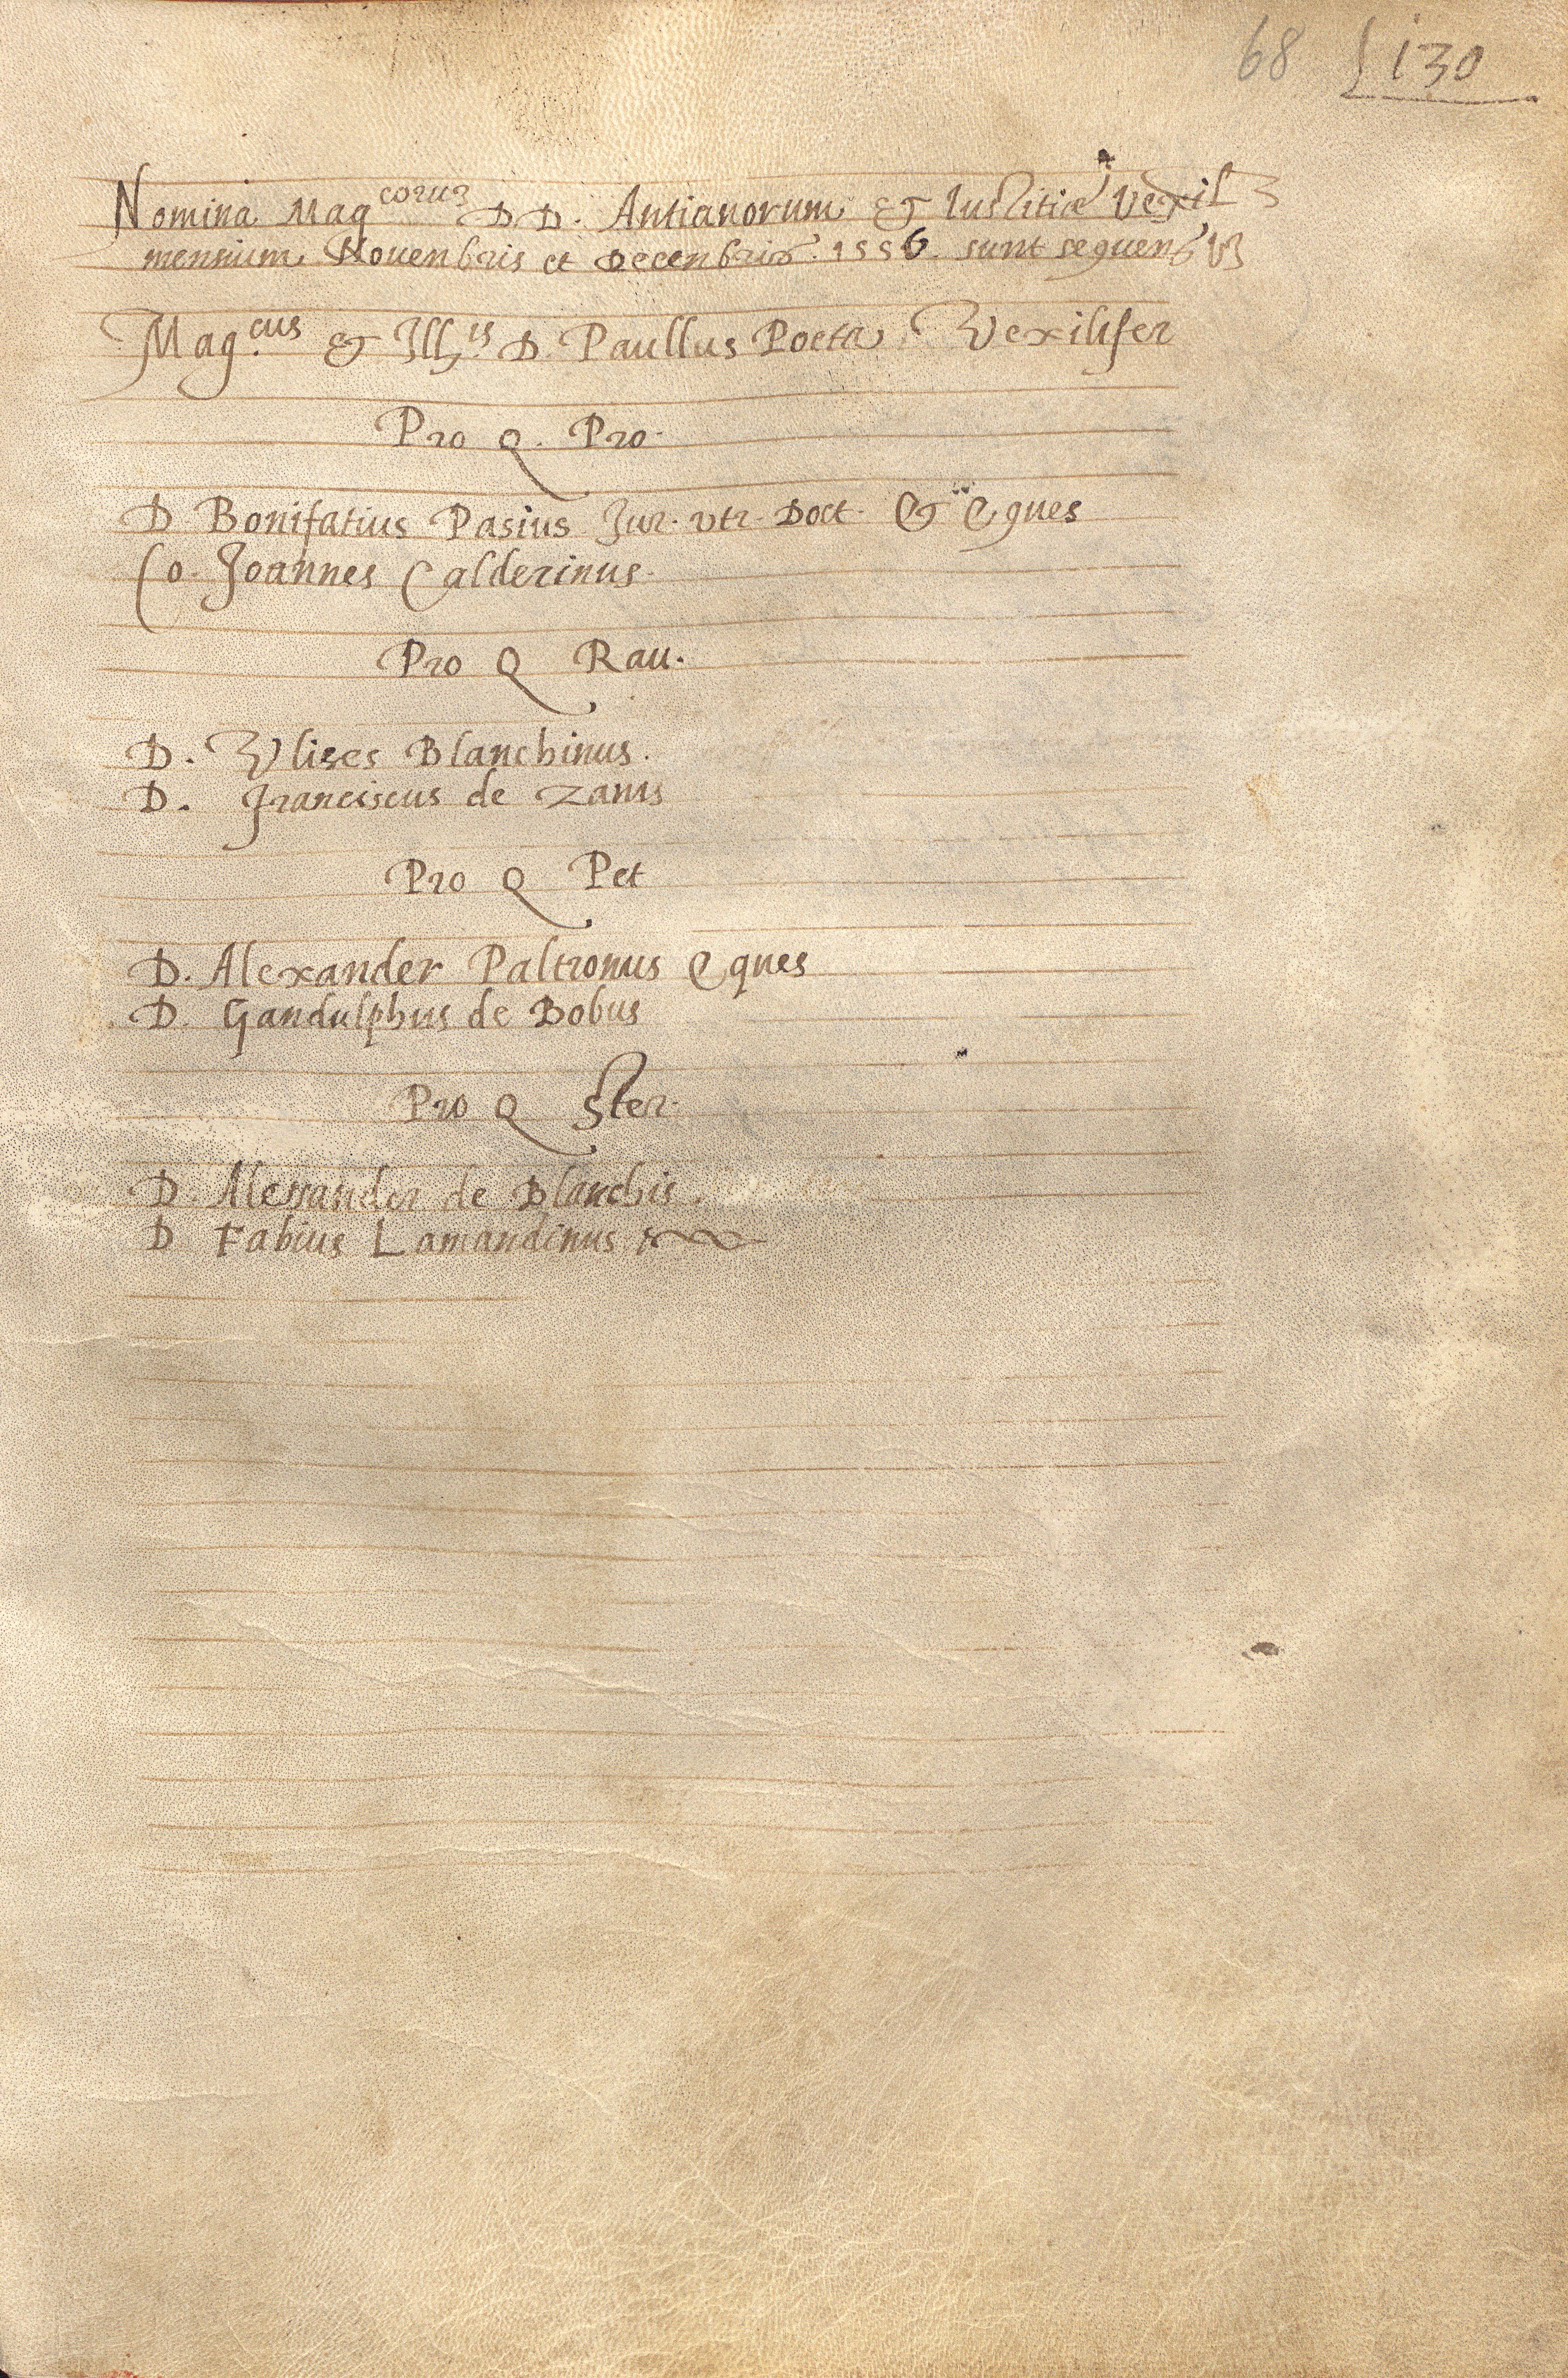 68 130
Nomina Mag^corum D. D. Antianorum & Iustitiæ Vexil
mensium Nouenbris et Decenbris. 1556. sunt sequen
Mag.^cus & Ill.^is D. Paullus Poeta Vexilifer
Pro Q. Pro.
D Bonifatius Pasius Jur. vtr. Doct. & Eques
Co. Joannes Calderinus.
Pro Q Rau.
D. Vlises Blanchinus.
D. Franciscus de Zanis
Pro Q Pet
D. Alexander Paltronus Eques
D. Gandulphus de Bobus
Pro Q Ster.
D. Alessander de Blanchis.
D Fabius Lamandinus